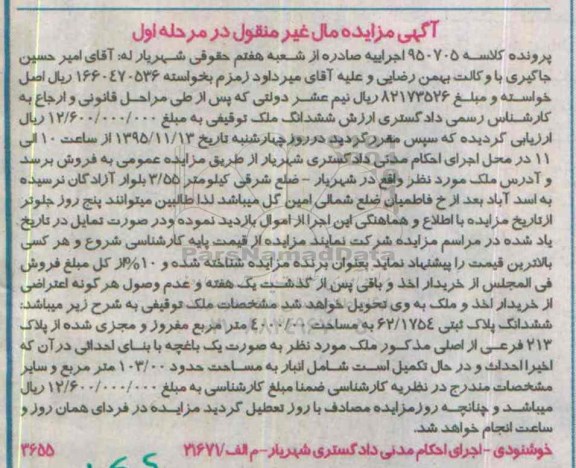 آگهی مزایده مال غیر منقول در مرحله اول
پرونده کلاسه ۹۵۰۷۰۵ اجراییه صادره از شعبه هفتم حقوقی شهریار له: آقای امیر حسین
جاگیری با وکالت بهمن رضایی و علیه آقای میرداود زمزم بخواسته ۱۶۶۰۴۷۰۵۳۶ ریال اصل
خواسته و مبلغ ۸۲۱۷۳۵۲۶ ریال نیم عشر دولتی که پس از طی مراحل قانونی و ارجاع به
کارشناس رسمی دادگستری ارزش ششدانگ ملک توقیفی به مبلغ ۱۲/۶۰۰/۰۰۰/۰۰۰ ریال
ارزیابی گردیده که سپس مقرر گردید در روز چهارشنبه تاریخ ۱۳۹۵/۱۱/۱۳ از ساعت ۱۰ الی
۱۱ در محل اجرای احکام مدنی دادگستری شهریار از طریق مزایده عمومی به فروش برسد
و آدرس ملک مورد نظر واقع در شهریار - ضلع شرقی کیلومتر ۳/۵۵ بلوار آزادگان نرسیده
به اسد آباد بعد از خ فاطمیان ضلع شمالی امین گل میباشد لذا طالبین میتوانند پنج روز جلوتر
ازتاریخ مزایده با اطلاع و هماهنگی این اجرا از اموال بازدید نموده ودر صورت تمایل در تاریخ
یاد شده در مراسم مزایده شرکت نمایند مزایده از قیمت پایه کارشناسی شروع و هر کسی
بالاترین قیمت را پیشنهاد نماید بعنوان برنده مزایده شناخته شده و ۱۰%از کل مبلغ فروش
فی المجلس از خریدار اخذ و باقی پس از گذشت یک هفته و عدم وصول هر گونه اعتراضی
از خریدار اخذ و ملک به وی تحویل خواهد شد مشخصات ملک توقیفی به شرح زیر میباشد:
ششدانگ پلاک ثبتی ۶۲/۱۷۵۴ به مساحت ۴۰۰/۰۰ متر مربع مفروز و مجزی شده از پلاک
۲۱۳ فرعی از اصلی مذکور ملک مورد نظر به صورت یک باغچه با بنای احداثی در آن که
اخیرا احداث و در حال تکمیل است شامل انبار به مساحت حدود ۱۰۳/۰۰ متر مربع و سایر
مشخصات مندرج در نظریه کارشناسی ضمنا مبلغ کارشناسی به مبلغ ۱۲/۶۰۰/۰۰۰/۰۰۰ ریال
میباشد و چنانچه روز مزایده مصادف با روز تعطیل گردید مزایده در فردای همان روز و
ساعت انجام خواهد شد.
خوشنودی - اجرای احکام مدنی دادگستری شهریار - م الف/۲۱۶۷۱ ۳۶۵۵
ParsNamadData